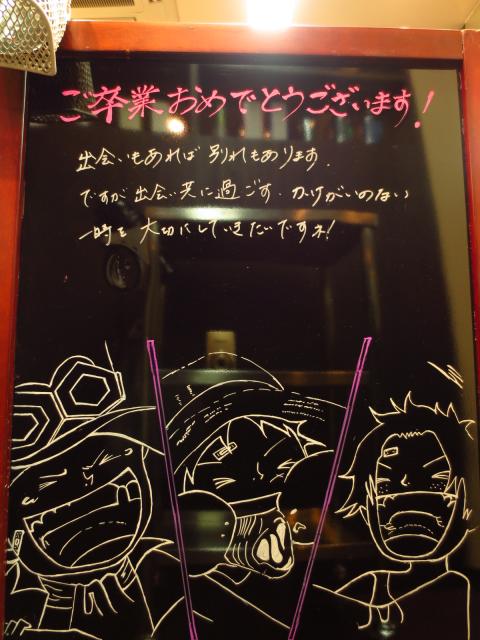 ご卒業おめでとうございます!
出会いもあれば 別れもあります.
ですが 出会い共に過ごす、かけがいのない
一時を 大切にしていきたいですネ!